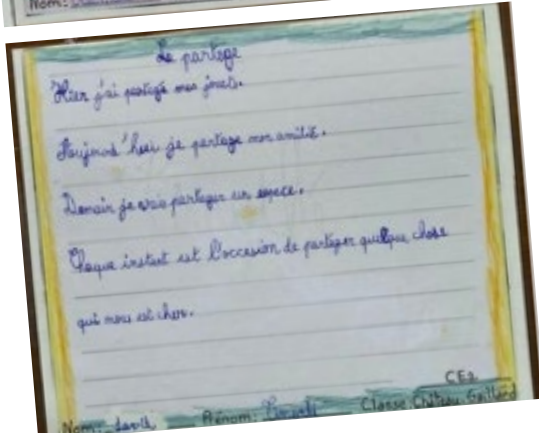 Nom:
Le partage
Hier j'ai partagé mes jouets.
Aujourd'hui je partage mon amitié.
Demain je vais partager un espace.
Chaque instant est l'occasion de partager quelque chose
qui nous est chère.
CE2
Nom: Prénom: Classe Château Gaillard